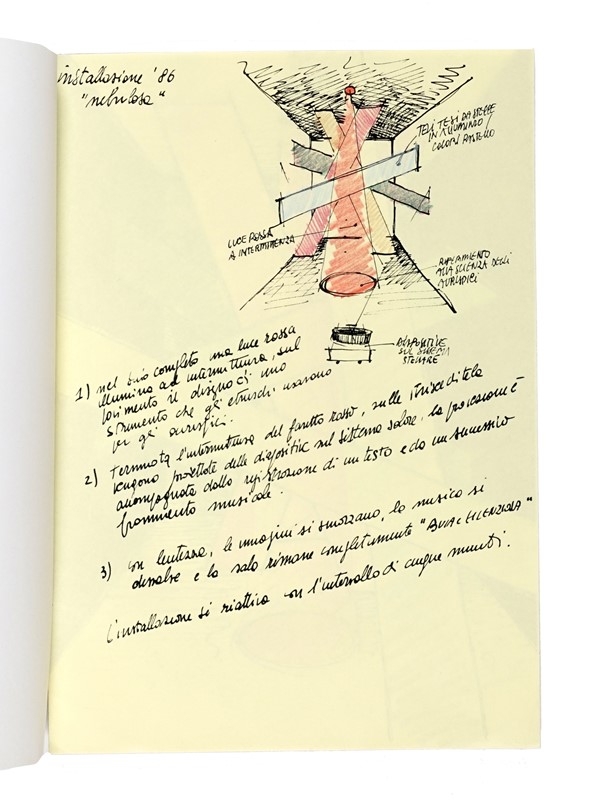 installazione '86
"nebulosa"
TELI TESI DA STOFFE
IN ALLUMINIO
COLORI PASTELLO
LUCE ROSSA
A INTERMITTENZA
RIFERIMENTO
ALLA SCIENZA DEGLI
AURUSPICI
DIAPOSITIVE
SUL SISTEMA
STELLARE
1) nel buio completo una luce rossa
illumina ad intermittenza, sul
pavimento il disegno di uno
strumento che gli etruschi usavano
per gli aurispici.
2) Terminata l'intermittenza del faretto rosso, sulle strisce di tela
vengono proiettate delle diapositive sul sistema solare, la proiezione è
accompagnata dalla registrazione di un testo e da un successivo
frammento musicale.
3) con lentezza, le immagini si smorzano, la musica si
dissolve e la sala rimane completamente "BUIA E SILENZIOSA"
L'installazione si riattiva con l'intervallo di cinque minuti.